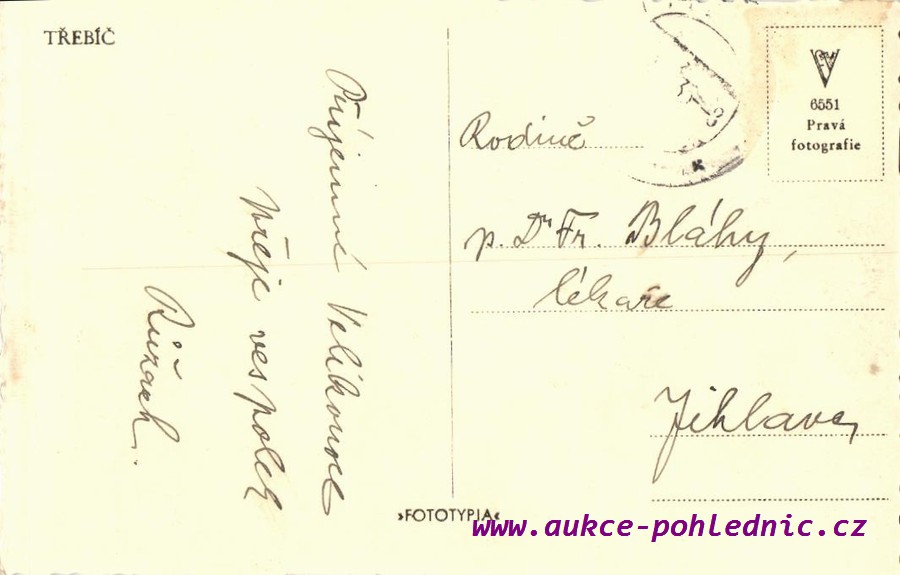 TŘEBÍČ
Příjemné Velikonoce
přeje vespolek
6551
Pravá
fotografie
Rodině
p. Dr Fr. Bláhy,
lékaře
Jihlava
»FOTOTYPIA«
www.aukce-pohlednic.cz